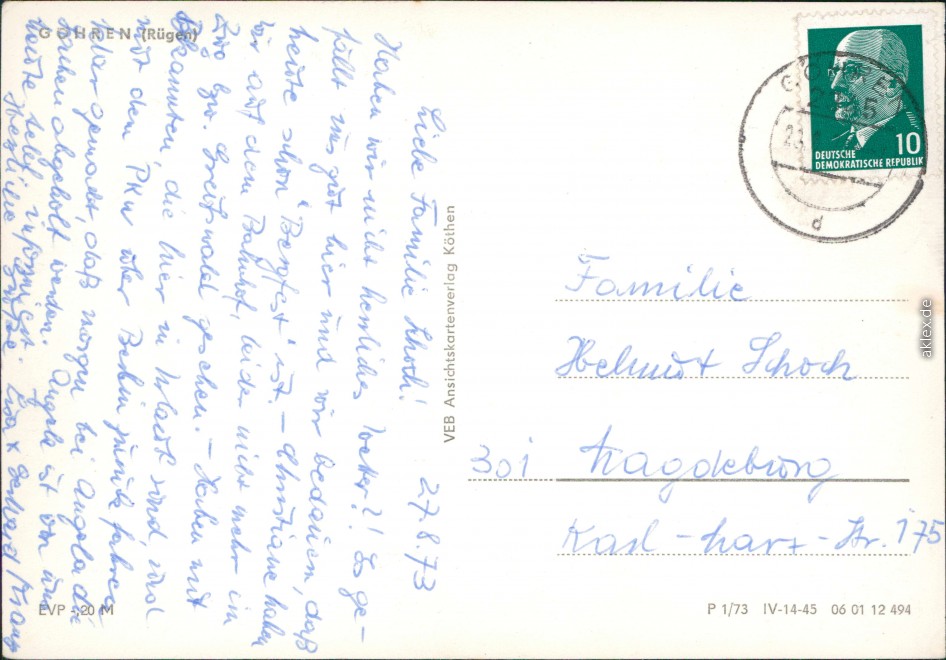 GÖHREN (Rügen)
Liebe Familie Schoch! 27.8.73
Haben wir nicht herrliches Wetter?! Es ge-
fällt uns gut hier und wir bedauern, daß
heute schon "Bergfest" ist. - Christiane haben
wir auf dem Bahnhof, leider nicht mehr in
bzw. Greifswald gesehen. - Haben mit
Bekannten, die hier in Urlaub sind, und
mit dem PKW über Berlin zurück fahren
gemacht, daß morgen bei Angela die
Sachen abgeholt werden. Angela ist von uns
heute telef. informiert.
Herzliche Grüße
VEB Ansichtskartenverlag Köthen
EVP -,20 M
10
DEUTSCHE
DEMOKRATISCHE REPUBLIK
d
Familie
Helmut Schoch
301 Magdeburg
Karl-Marx-Str. 175
P 1/73 IV-14-45 06 01 12 494
aklex.de